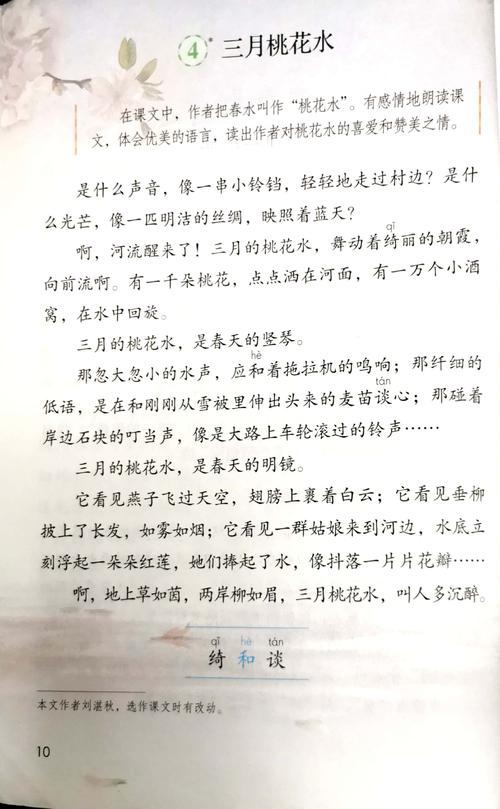 4* 三月桃花水
在课文中，作者把春水叫作“桃花水”。有感情地朗读课
文，体会优美的语言，读出作者对桃花水的喜爱和赞美之情。
是什么声音，像一串小铃铛，轻轻地走过村边？是什
么光芒，像一匹明洁的丝绸，映照着蓝天？
qǐ
啊，河流醒来了！三月的桃花水，舞动着绮丽的朝霞，
向前流啊。有一千朵桃花，点点洒在河面，有一万个小酒
窝，在水中回旋。
三月的桃花水，是春天的竖琴。
hè
那忽大忽小的水声，应和着拖拉机的鸣响；那纤细的
tán
低语，是在和刚刚从雪被里伸出头来的麦苗谈心；那碰着
岸边石块的叮当声，像是大路上车轮滚过的铃声……
三月的桃花水，是春天的明镜。
它看见燕子飞过天空，翅膀上裹着白云；它看见垂柳
披上了长发，如雾如烟；它看见一群姑娘来到河边，水底立
刻浮起一朵朵红莲，她们捧起了水，像抖落一片片花瓣……
啊，地上草如茵，两岸柳如眉，三月桃花水，叫人多沉醉。
qǐ hè tán
绮 和 谈
本文作者刘湛秋，选作课文时有改动。
10